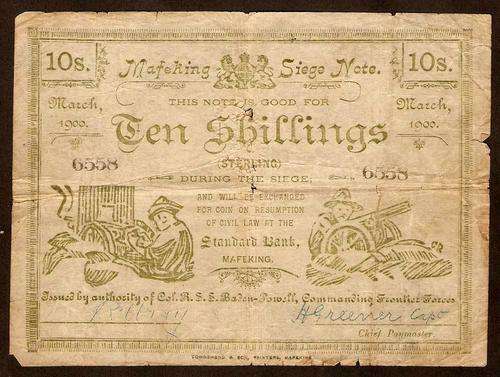 10s. Mafeking Siege Note. 10s.
March, 1900.
THIS NOTE IS GOOD FOR
March, 1900.
Ten Shillings
6558
(STERLING)
6558
DURING THE SIEGE,
AND WILL BE EXCHANGED
FOR COIN ON RESUMPTION
OF CIVIL LAW AT THE
Standard Bank,
MAFEKING.
Issued by authority of Col. R. S. S. Baden-Powell, Commanding Frontier Forces
HGreener Capt
Chief Paymaster.
TOWNSHEND & SON, PRINTERS, MAFEKING